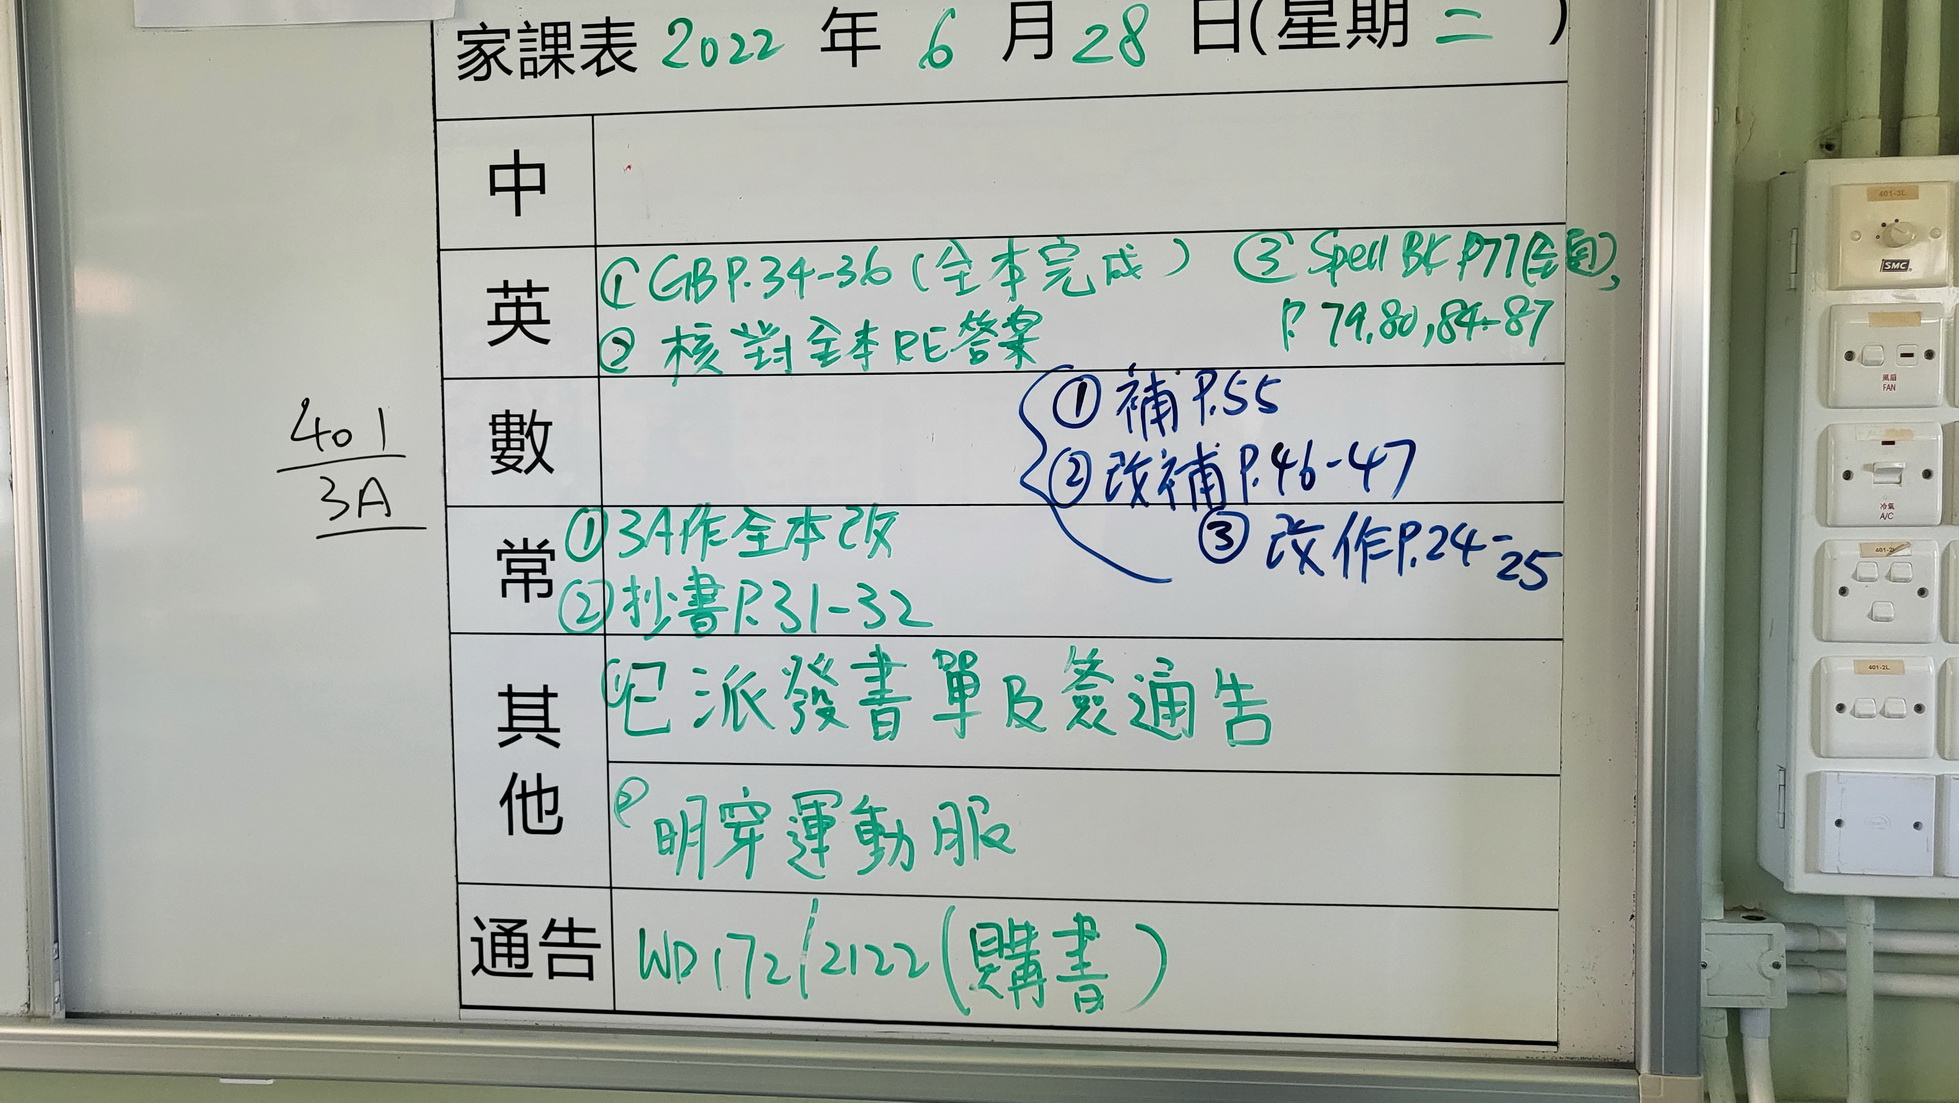 家課表 2022 年 6 月 28 日(星期二)
中
英
① GB P.34-36 (全本完成) ③ Spell BK P77(全頁),
P. 79,80,84-87
② 核對全本RE答案
數
① 補 P.55
② 改補 P.46-47
③ 改作P.24-25
401
3A
常
① 3A作全本改
② 抄書P.31-32
其他
① 已派發書單及簽通告
② 明穿運動服
通告
WD172/2122(購書)
401-3L
SMC
風扇
FAN
冷氣
A/C
401-2L